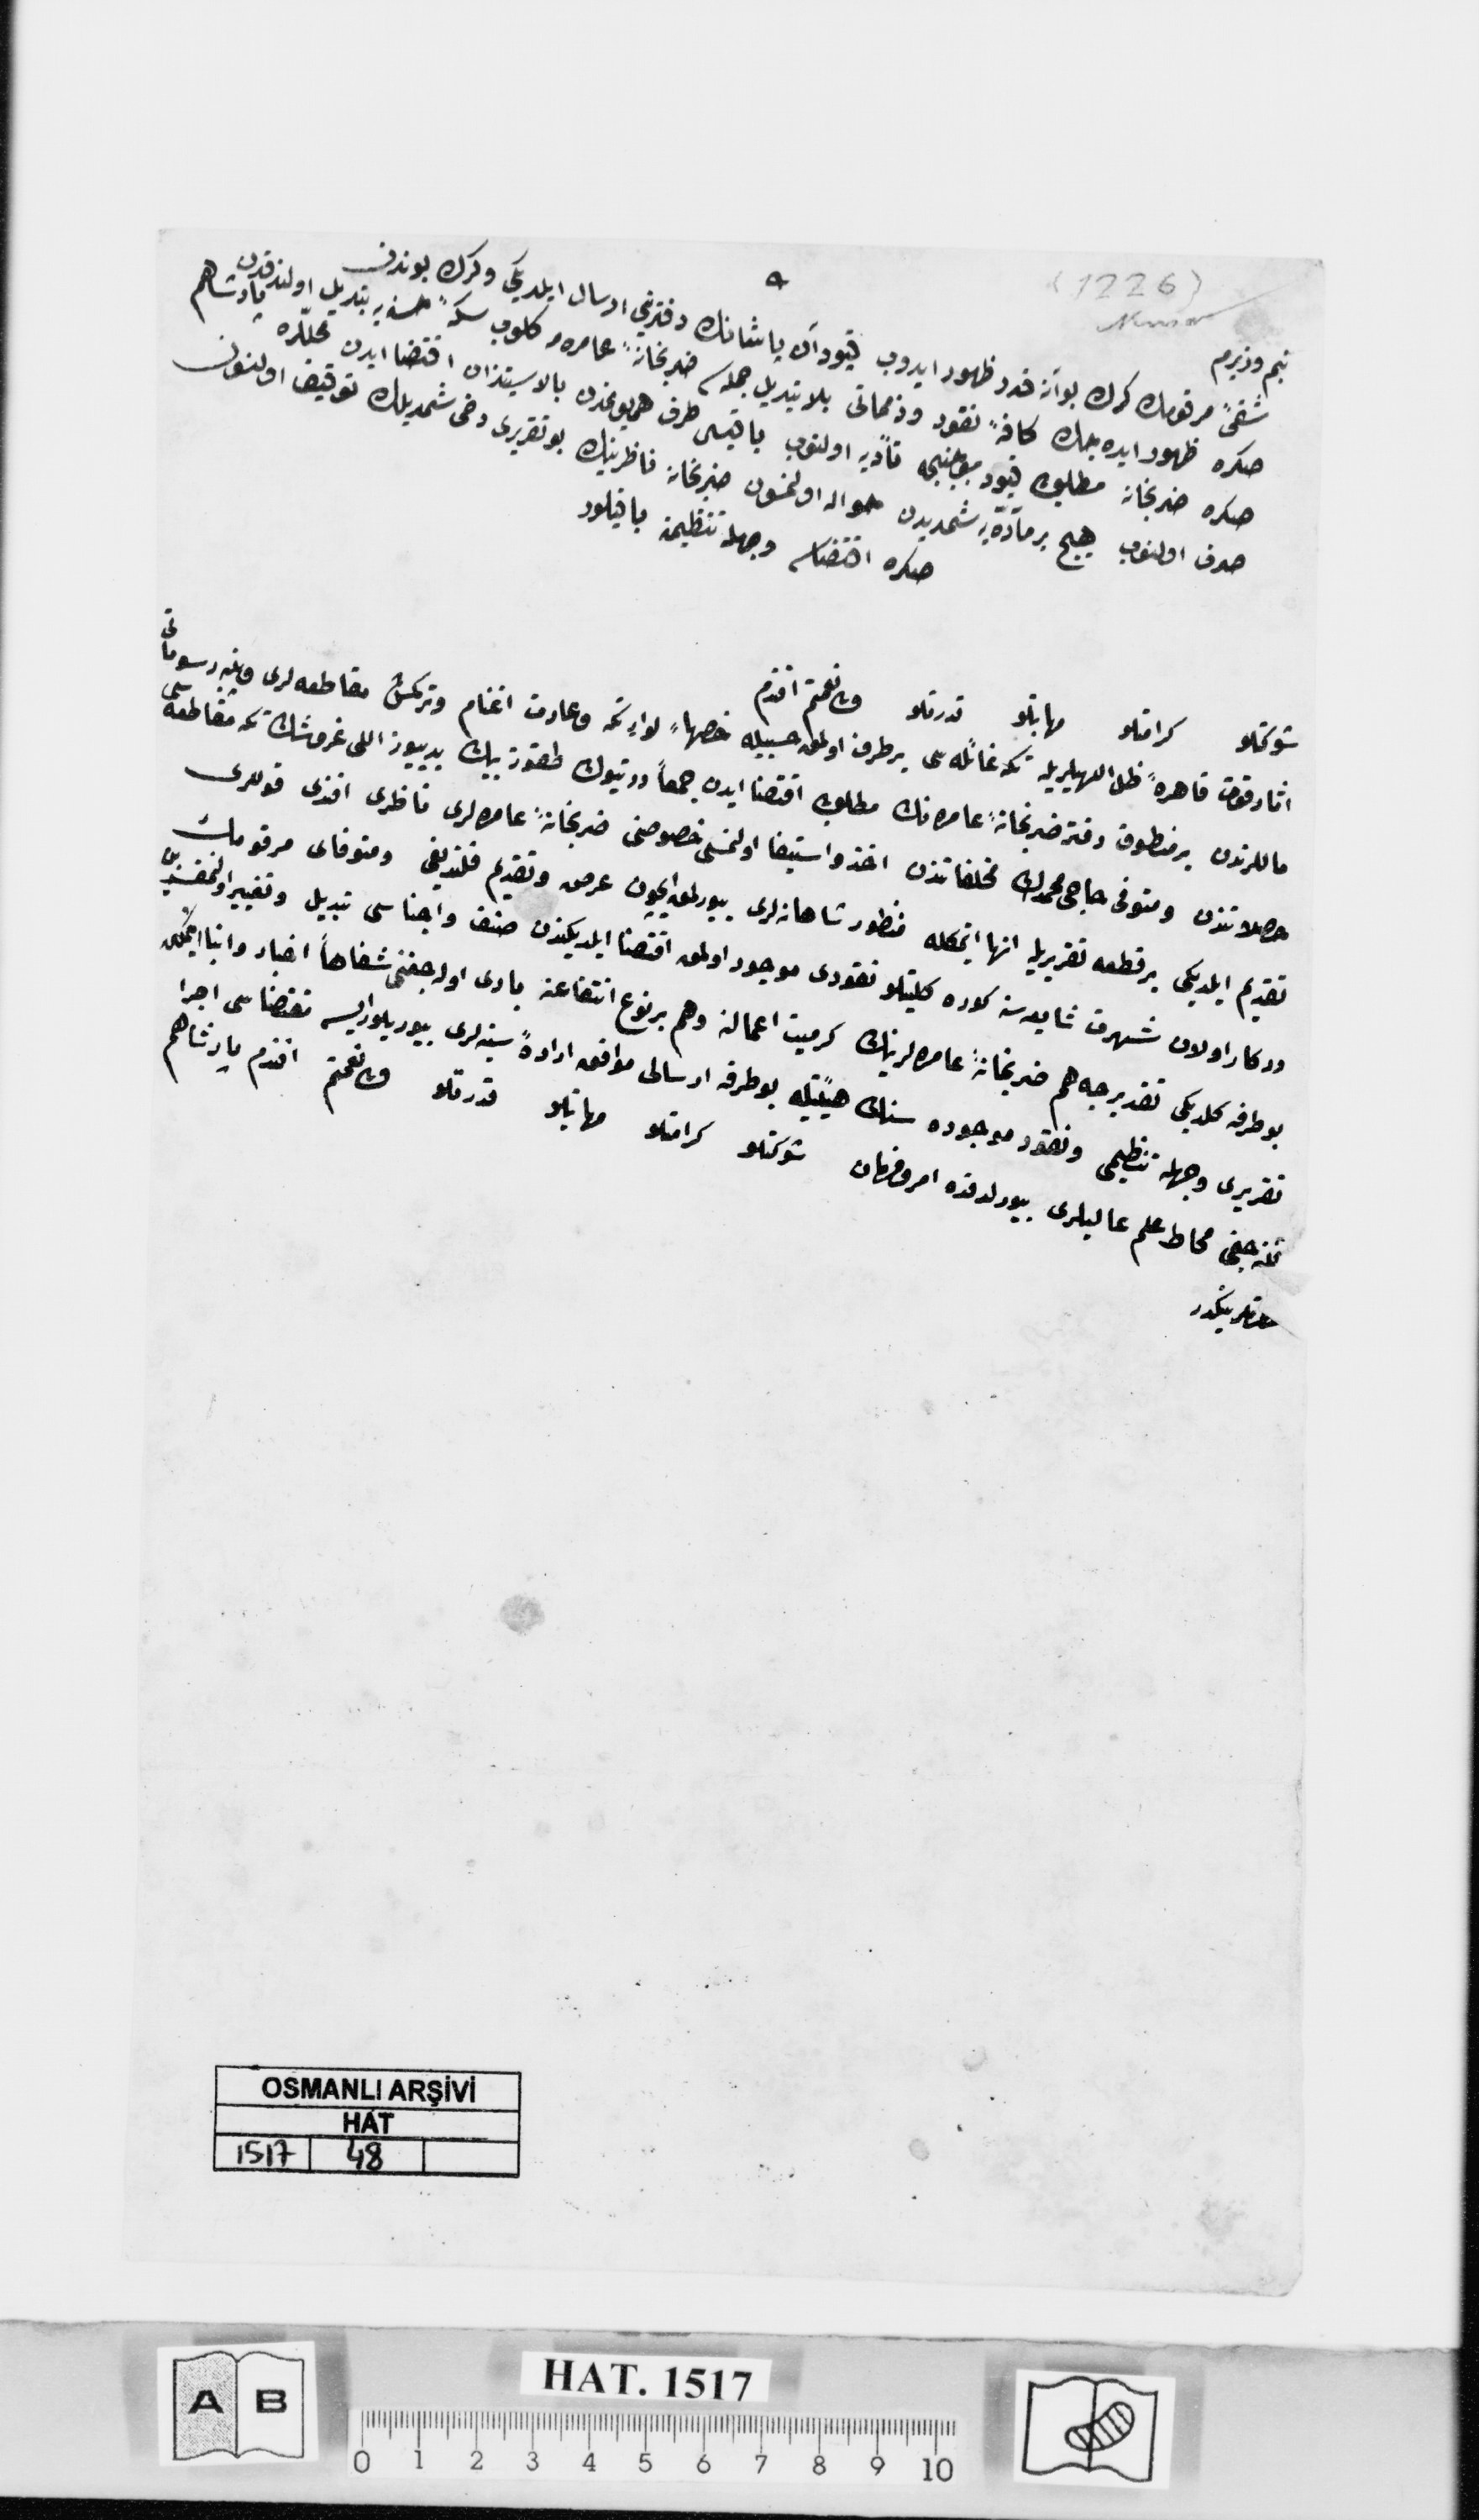 (1226)
بنم وزيرم
شقئ مرقومك كرك بو آنه قدر ظهور ايدوب قپودان پاشانك دفترينى ارسال ايلديكى وكرك بوندن
صكره ظهور ايده جك كافۀ نقود وذمماتى بلا تبديل جمله سى ضربخانۀ عامره مه كلوب سكۀ حسنه يه تبديل اولندقدن
صكره ضربخانه مطلوبى قيود موجبنجه تأديه اولنوب باقيسى طرف همايونمدن بالاستيذان اقتضا ايدن محللره
صرف اولنوب هيچ بر ماده يه شمديدن حواله اولنمسون ضربخانه ناظرينك بو تقريرى دخى شمديلك توقيف اولنسون
صكره اقتضاسى وجهله تنظيمنه باقيلور
شوكتلو كرامتلو مهابتلو قدرتلو ولى نعمتم افندم پادشاهم
اثار قوت قاهرۀ ظل اللهيلريله تكه غائله سى برطرف اولمق حسبيله لواء تكه وعادت اغنام وتركمش مقاطعه لرى وينه رسوماتى
ماللرندن بر منطوق دفتر ضربخانۀ عامره نك مطلوبى اقتضا ايدن جمعاً درتيوك طقوز بيك يدييوز اللى غروشك تكه مقاطعه سى
حاصلاتندن ومتوفى حاجى محمدك مخلفاتندن اخذ واستيفا اولنمسى خصوصنى ضربخانۀ عامره لرى ناظرى افندى قوللرى
تقديم ايلديكى بر قطعه تقريريله انها ايتمكله منظور شاهانه لرى بيورلمق ايچون عرض وتقديم قلنديغى ومتوفاى مرقومك
دركار اولان شهرت شايعه سنه كوره كليتلو نقودى موجود اولمق اقتضا ايلديكندن صنف واجناسى تبديل وتغيير اولنمقسزين
بو طرفه كلديكى تقديرجه هم ضربخانۀ عامره لرينك كرميت اعمالنه وهم بر نوع انتفاعنه بادى اوله جغنى شفاهاً اخبار وانبا ايتمكله
تقريرى وجهله تنظيمى ونقود موجوده سنك هيئتيله بو طرفه ارسالى موافق ارادۀ سنيه لرى بيوريلور ايسه مقتضاسى اجرا
قلنه جغى محاط علم عاليلرى بيورلدقده امر وفرمان شوكتلو كرامتلو مهابتلو قدرتلو ولى نعمتم افندم پادشاهم
حضرتلرينكدر
OSMANLI ARŞİVİ
HAT
1517 48
A B
HAT. 1517
0 1 2 3 4 5 6 7 8 9 10